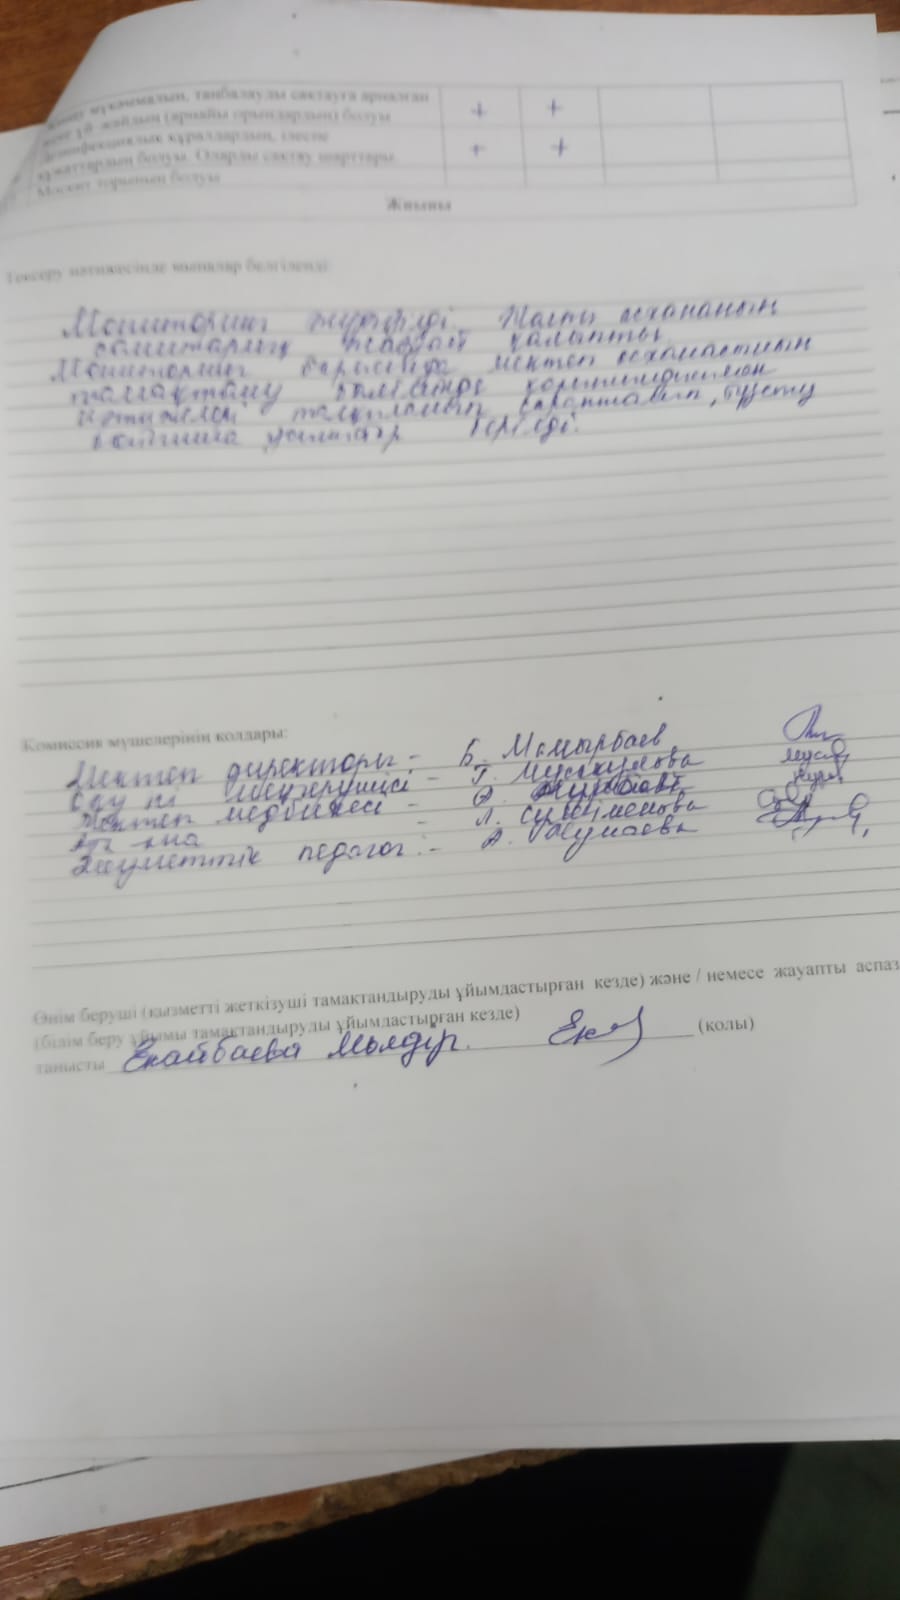 жинау мүкәммалын, таңбалауды сақтауға арналған
және үй-жайдың (арнайы орындардың) болуы + +
Дезинфекциялық құралдардың, ілеспе
құжаттардың болуы. Оларды сақтау шарттары + +
Москит торының болуы
Жиыны
Тексеру нәтижесінде мыналар белгіленді:
Мониторинг жүргізілді. Жалпы асхананың
санитарлық жағдай қалыпты.
Мониторинг барысында мектеп асханасының
тамақтану бөлмесінде
нәтижелері талқыланып сарапталып, түзету
бойынша ұсыныстар берілді.
Комиссия мүшелерінің қолдары:
Мектеп директоры - Б. Мамырбаев
Оқу ісі меңгерушісі - Г. Мусакулова
Мектеп медбикесі -
Ата-ана - Л. Сулейменова
Әлеуметтік педагог: - А. Жумаева
Өнім беруші (қызметті жеткізуші тамақтандыруды ұйымдастырған кезде) және / немесе жауапты аспаз
(білім беру ұйымы тамақтандыруды ұйымдастырған кезде)
танысты Екайбаева Мөлдір. (қолы)